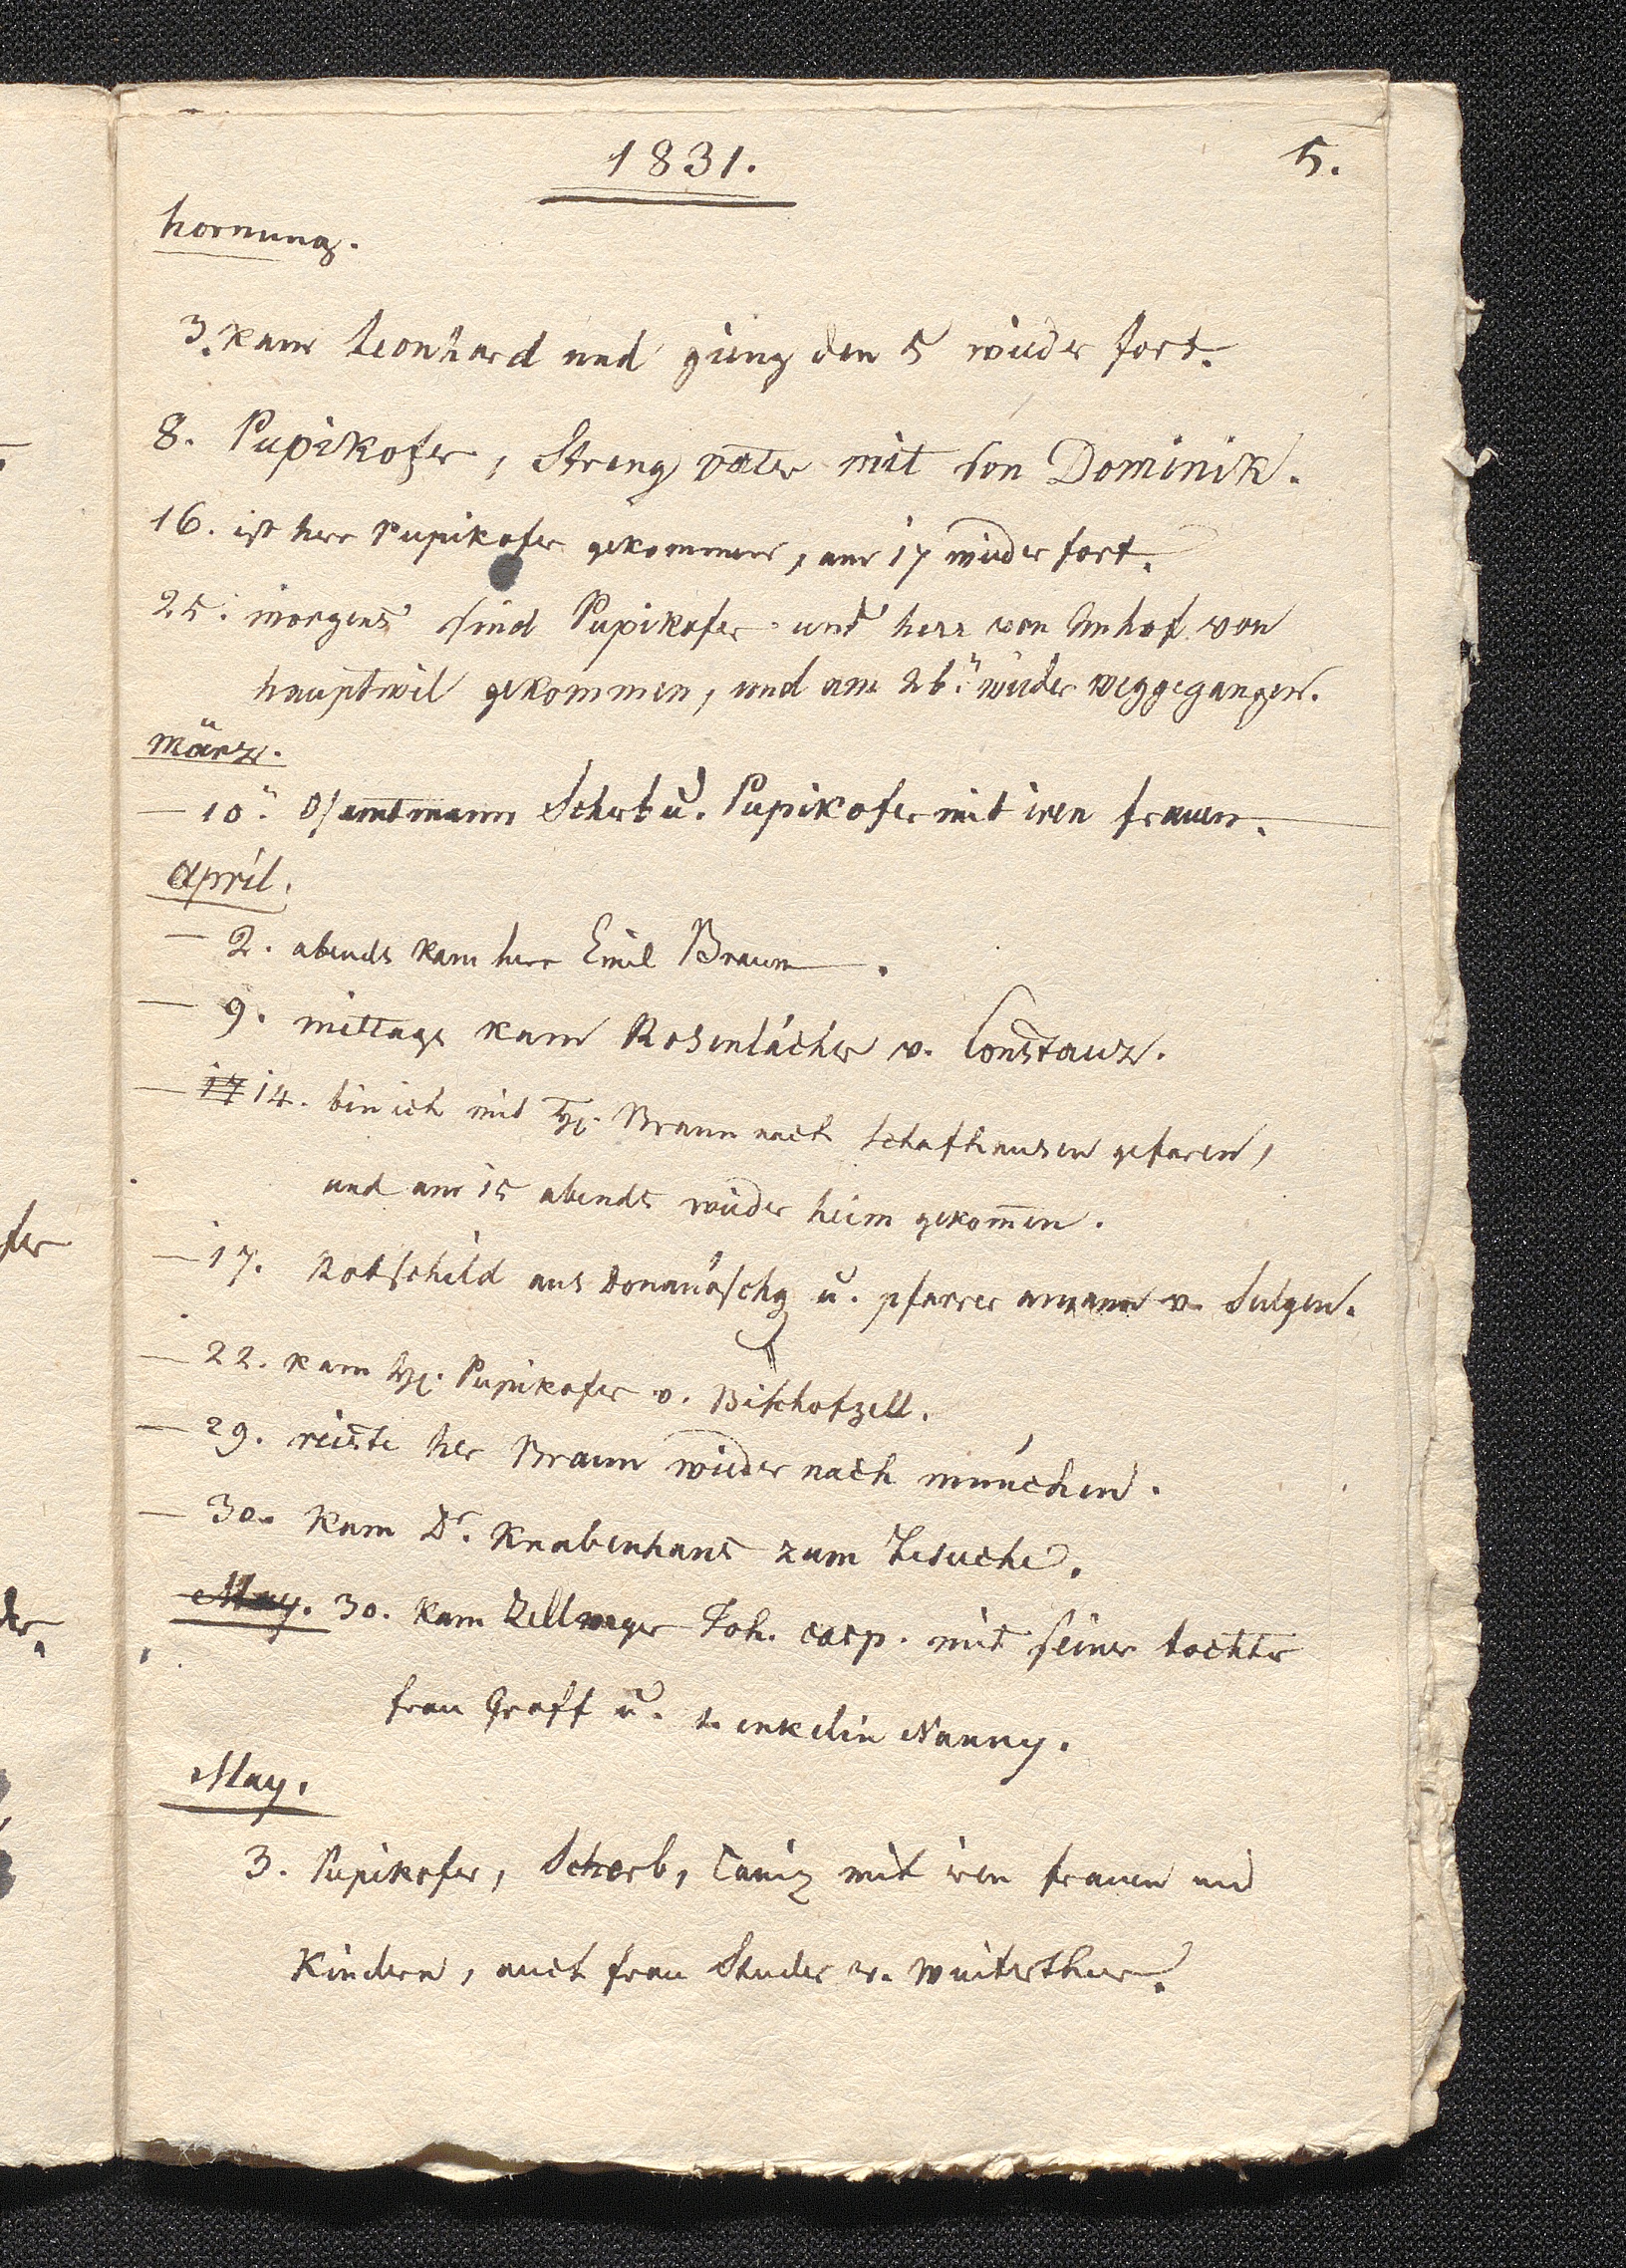 1831.
5.
hornung.
3. kam Leonhard und gieng den 5 wieder fort.
8. Pupikofer, Streng vater mit son Dominik.
16. ist herr Pupikofer gekommen, am 17 wieder fort.
25. morgens sind Pupikofer und herr von Imhof von
hauptwil gekommen, und am 26.n wieder weggegangen.
März.
— 10.n amtmann Scherb u. Pupikofer mit iren frauen.
April.
— 2. abends kam herr Emil Braun.
— 9. mittags kam Rosenlächer v. Constanz.
— 17 14. bin ich mit H. Braun nach Schafhausen gefaren,
und am 15 abends wieder heim gekom̄en.
— 17. Rotschild aus Donauöschg u. pfarrer amann v. Sulgen.
— 22. kam H. Pupikofer v. Bischofzell.
— 29. reiste her Braun wieder nach münchen.
— 30. kam Dr. Knabenhans zum besuche.
May. 30. kam Zellweger Joh. casp. mit seiner tochter
frau Graff u. s. enkelin Nanny.
May.
3. Pupikofer, Scherb, Caniz mit iren frauen und
Kindern, auch frau Studer v. Winterthur.
fer
der.